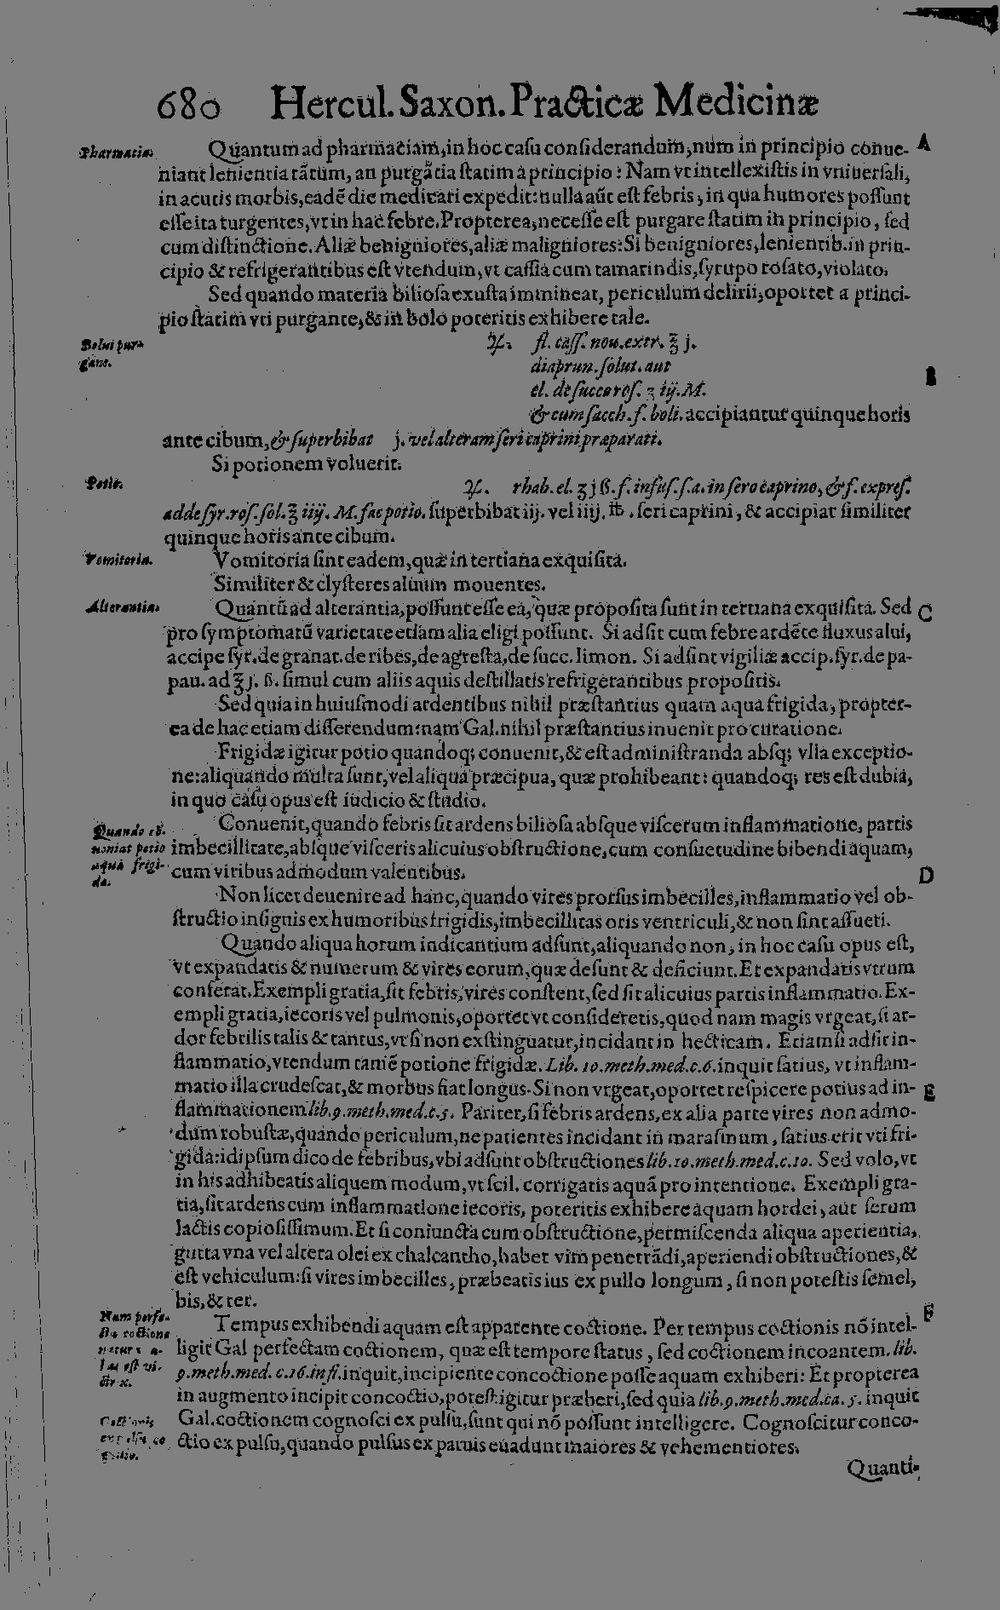 680 Hercul. Saxon. Practicæ Medicinæ
Pharmatia. Quantum ad pharmaciam, in hoc casu considerandum, num in principio conue- A
niant lenientia tãtum, an purgãtia statim à principio: Nam vt intellexistis in vniuersali,
in acutis morbis, eadẽ die medicari expedit: nulla aũt est febris, in qua humores possunt
esse ita turgentes, vt in hac febre. Propterea, necesse est purgare statim in principio, sed
cum distinctione. Aliæ benigniores, aliæ maligniores: Si benigniores, lenientib. in prin-
cipio & refrigerantibus est vtendum, vt cassia cum tamarindis, syrupo rosato, violato.
Sed quando materia biliosa exusta immineat, periculum delirii, oportet a princi-
pio statim vti purgante, & in bolo poteritis exhibere tale.
Bolus pur-
gans.
℞. fl. cass. nou. extr. ʒ j.
diaprun. solut. aut
el. de succo ros. ʒ iij. M.
& cum sacch. f. boli. accipiantur quinque horis
B
ante cibum, & superbibat j. vel alteram seri caprini præparati.
Si potionem voluerit.
Potio. ℞. rhab. el. ʒ j ß. f. infus. s. a. in sero caprino, & f. expres.
adde syr. ros. sol. ʒ iiij. M. fac potio. superbibat iij. vel iiij. ℔. seri caprini, & accipiat similiter
quinque horis ante cibum.
Vomitoria. Vomitoria sint eadem, quæ in tertiana exquisita.
Similiter & clysteres aluum mouentes.
Alterantia. Quantũ ad alterantia, possunt esse ea, quæ proposita sunt in tertiana exquisita. Sed C
pro symptomatũ varietate etiam alia eligi possunt. Si adsit cum febre ardẽte fluxus alui,
accipe syr. de granat. de ribes, de agresta, de succ. limon. Si adsint vigiliæ accip. syr. de pa-
pau. ad ʒ j. ß. simul cum aliis aquis destillatis refrigerantibus propositis.
Sed quia in huiusmodi ardentibus nihil præstantius quam aqua frigida, propter-
ea de hac etiam disserendum: nam Gal. nihil præstantius inuenit pro curatione.
Frigidæ igitur potio quandoq; conuenit, & est administranda absq; vlla exceptio-
ne: aliquando multa sunt, vel aliqua præcipua, quæ prohibeant: quandoq; res est dubia,
in quo casu opus est iudicio & studio.
Quando cō-
ueniat potio
aquæ frigi-
dæ.
Conuenit, quando febris sit ardens biliosa absque viscerum inflammatione, partis
imbecillitate, absque visceris alicuius obstructione, cum consuetudine bibendi aquam,
cum viribus admodum valentibus. D
Non licet deuenire ad hanc, quando vires prorsus imbecilles, inflammatio vel ob-
structio insignis ex humoribus frigidis, imbecillitas oris ventriculi, & non sint assueti.
Quando aliqua horum indicantium adsunt, aliquando non, in hoc casu opus est,
vt expandatis & numerum & vires eorum, quæ desunt & deficiunt. Et expandatis vtrum
conferat. Exempli gratia, sit febris, vires constent, sed sit alicuius partis inflammatio. Ex-
empli gratia, iecoris vel pulmonis, oportet vt consideretis, quod nam magis vrgeat, si ar-
dor febrilis talis & tantus, vt si non exstinguatur, incidant in hecticam. Etiamsi adsit in-
flammatio, vtendum tamẽ potione frigidæ. Lib. 10. meth. med. c. 6. inquit satius, vt inflam-
matio illa crudescat, & morbus fiat longus. Si non vrgeat, oportet respicere potius ad in- E
flammationem lib. 9. meth. med. c. 5. Pariter, si febris ardens, ex alia parte vires non admo-
dum robustæ, quando periculum, ne patientes incidant in marasmum, satius erit vti fri-
gida: idipsum dico de febribus, vbi adsunt obstructiones lib. 10. meth. med. c. 10. Sed volo, vt
in his adhibeatis aliquem modum, vt scil. corrigatis aquã pro intentione. Exempli gra-
tia, sit ardens cum inflammatione iecoris, poteritis exhibere aquam hordei, aut serum
lactis copiosissimum. Et si coniuncta cum obstructione, permiscenda aliqua aperientia,
gutta vna vel altera olei ex chalcantho, habet vim penetrãdi, aperiendi obstructiones, &
est vehiculum: si vires imbecilles, præbeatis ius ex pullo longum, si non potestis semel,
bis, & ter.
Num perfe-
cta coctione
Tempus exhibendi aquam est apparente coctione. Per tempus coctionis nō intel- F
ligit Gal perfectam coctionem, quæ est tempore status, sed coctionem incoantem. lib.
9. meth. med. c. 16. infl. inquit, incipiente concoctione posse aquam exhiberi: Et propterea
in augmento incipit concoctio, potest igitur præberi, sed quia lib. 9. meth. med. ca. 5. inquit
Coctionis
Gal. coctionem cognosci ex pulsu, sunt qui nō possunt intelligere. Cognoscitur conco-
ctio ex pulsu, quando pulsus ex paruis euadunt maiores & vehementiores.
Quanti-